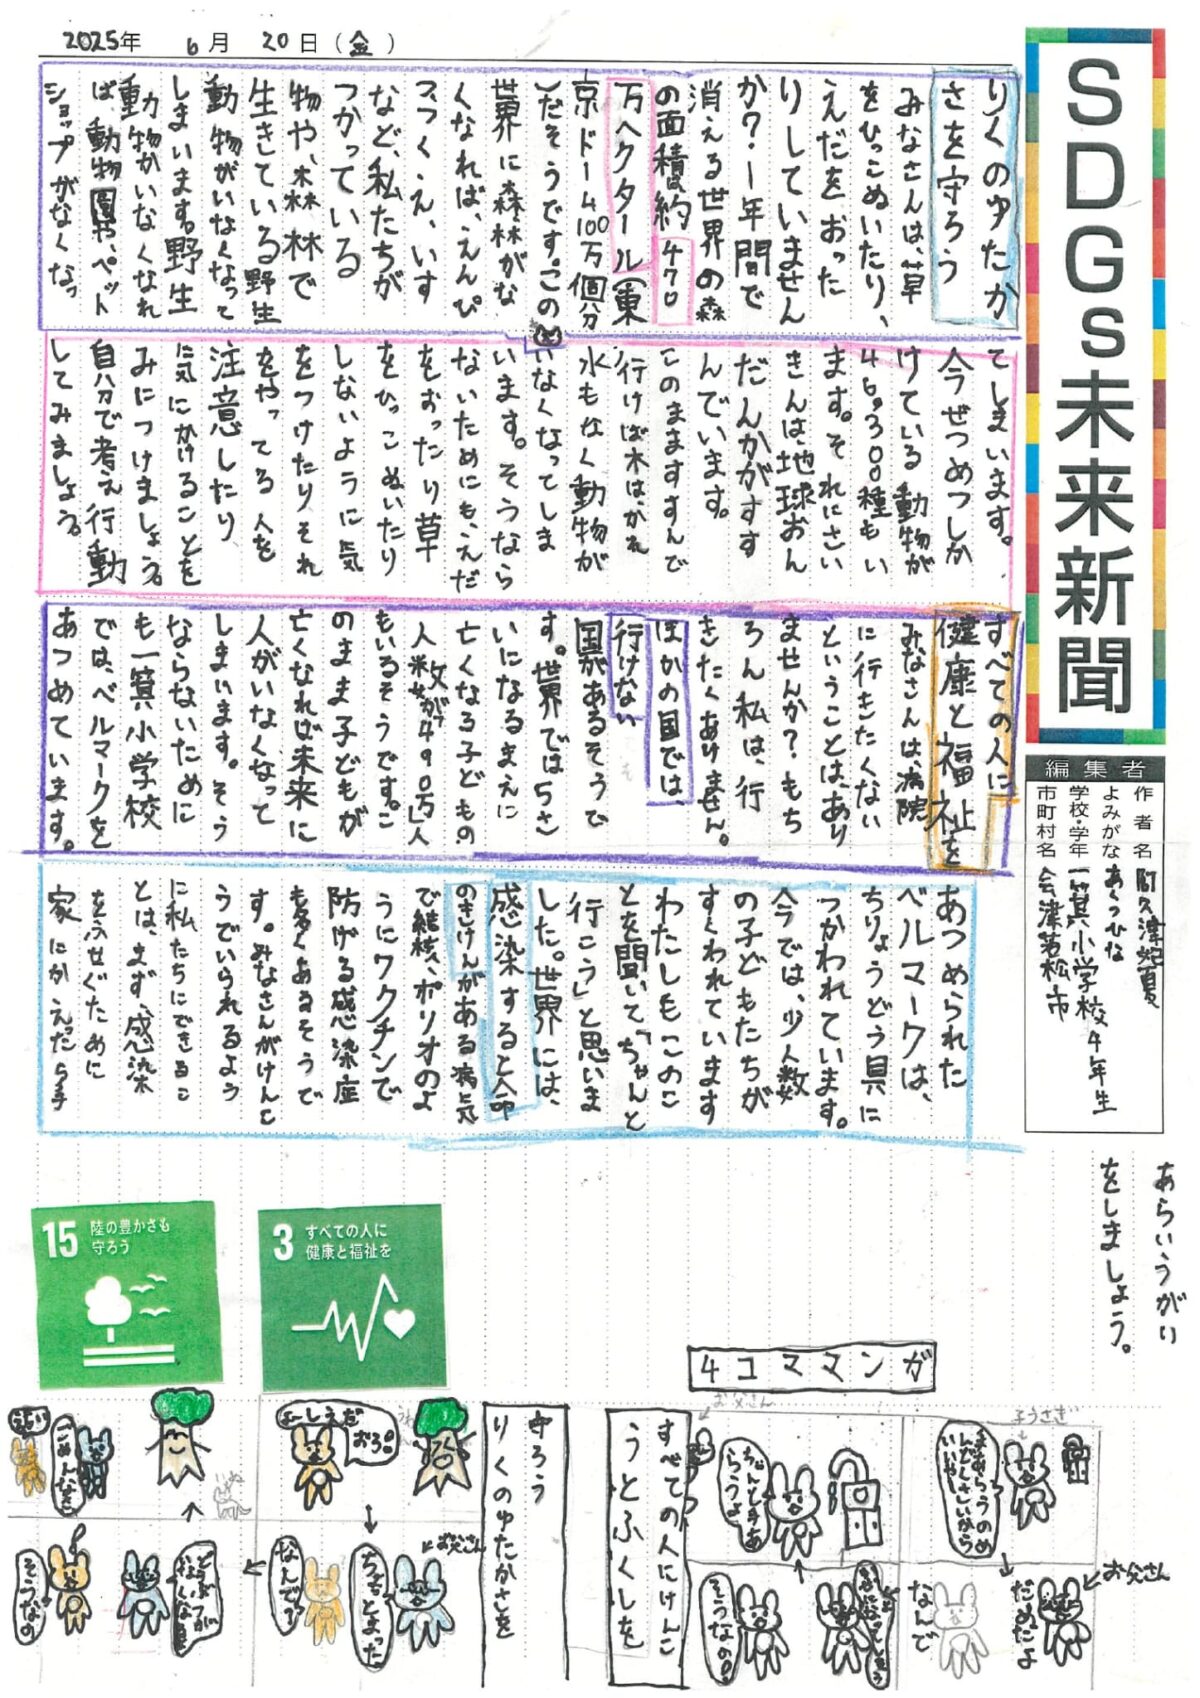 2025年 6月 20日(金)
SDGs未来新聞
編集者
作者名 阿久津妃夏
よみがな あくつひな
学校・学年 一箕小学校4年生
市町村名 会津若松市
りくのゆたか
さを守ろう
みなさんは、草
をひっこぬいたり、
えだをおった
りしていません
か?一年間で
消える世界の森
の面積約470
万ヘクタール(東
京ドーム100万個分
)だそうです。この
世界に森林がな
くなれば、えんぴ
つつくえ、いす
など、私たちが
つかっている
物や、森林で
生きている野生
動物がいなくなって
しまいます。野生
動物がいなくなれ
ば動物園や、ペット
ショップがなくなっ
てしまいます。
今ぜつめつしか
けている動物が
46,300種もい
ます。それにさい
きんは地球おん
だんかがすす
んでいます。
このまますすんで
行けば木は、かれ
水もなく動物が
いなくなってしま
います。そうなら
ないためにも、えだ
をおったり草
をひっこぬいたり
しないように気
をつけたりそれ
をやってる人を
注意したり
気にかけることを
みにつけましょう。
自分で考え行動
してみましょう。
すべての人に
健康と福祉を
みなさんは、病院
に行きたくない
ということは、あり
ませんか?もち
ろん私は、行
きたくありません。
ほかの国では、
行けない
国があるそうで
す。世界では5さ
いになるまえに
亡くなる子どもの
人数が「490万」人
もいるそうです。こ
のまま子どもが
亡くなれば未来に
人がいなくなって
しまいます。そう
ならないために
も一箕小学校
では、ベルマークを
あつめています。
あつめられた
ベルマークは、
ちりょうどう具に
つかわれています。
今では、少人数
の子どもたちが
すくわれています
わたしもこのこ
とを聞いて「ちゃんと
行こう」と思いま
した。世界には、
感染すると命
のきけんがある病気
で結核、ポリオのよ
うにワクチンで
防げる感染症
も多くあるそうで
す。みなさんがけんこ
うでいられるよう
に私たちにできるこ
とは、まず、感染
をふせぐために
家にかえったら手
あらいうがい
をしましょう。
15 陸の豊かさも
守ろう
3 すべての人に
健康と福祉を
4コママンガ
すべての人にけんこ
うとふくしを
子うさぎ
手あらうのめ
んどくさいから
いいや。
お父さん
だめだよ
なんで
そうなの?
お父さん
ちゃんと手あ
らうよ
りくのゆたかさを
守ろう
よーしえだ
おろ。
お父さん
ちょっとまった
なんで?
そうなの
ごめんなさい
いぬ